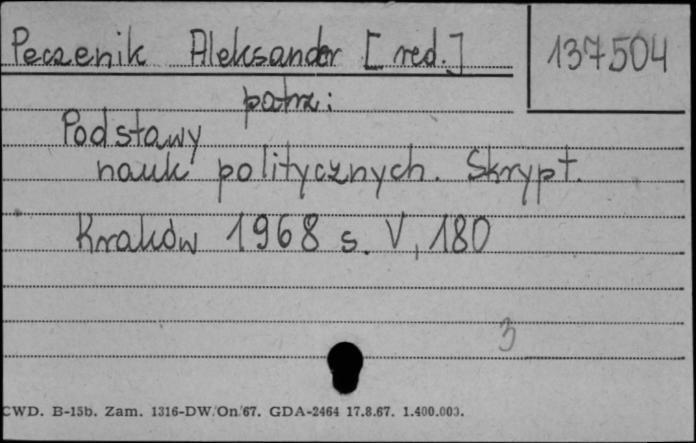 Peczenik Aleksander [red.]
137504
patrz:
Podstawy
nauk politycznych. Skrypt.
Kraków 1968 s. V, 180
3
CWD. B-15b. Zam. 1316-DW/On/67. GDA-2464 17.8.67. 1.400.000.